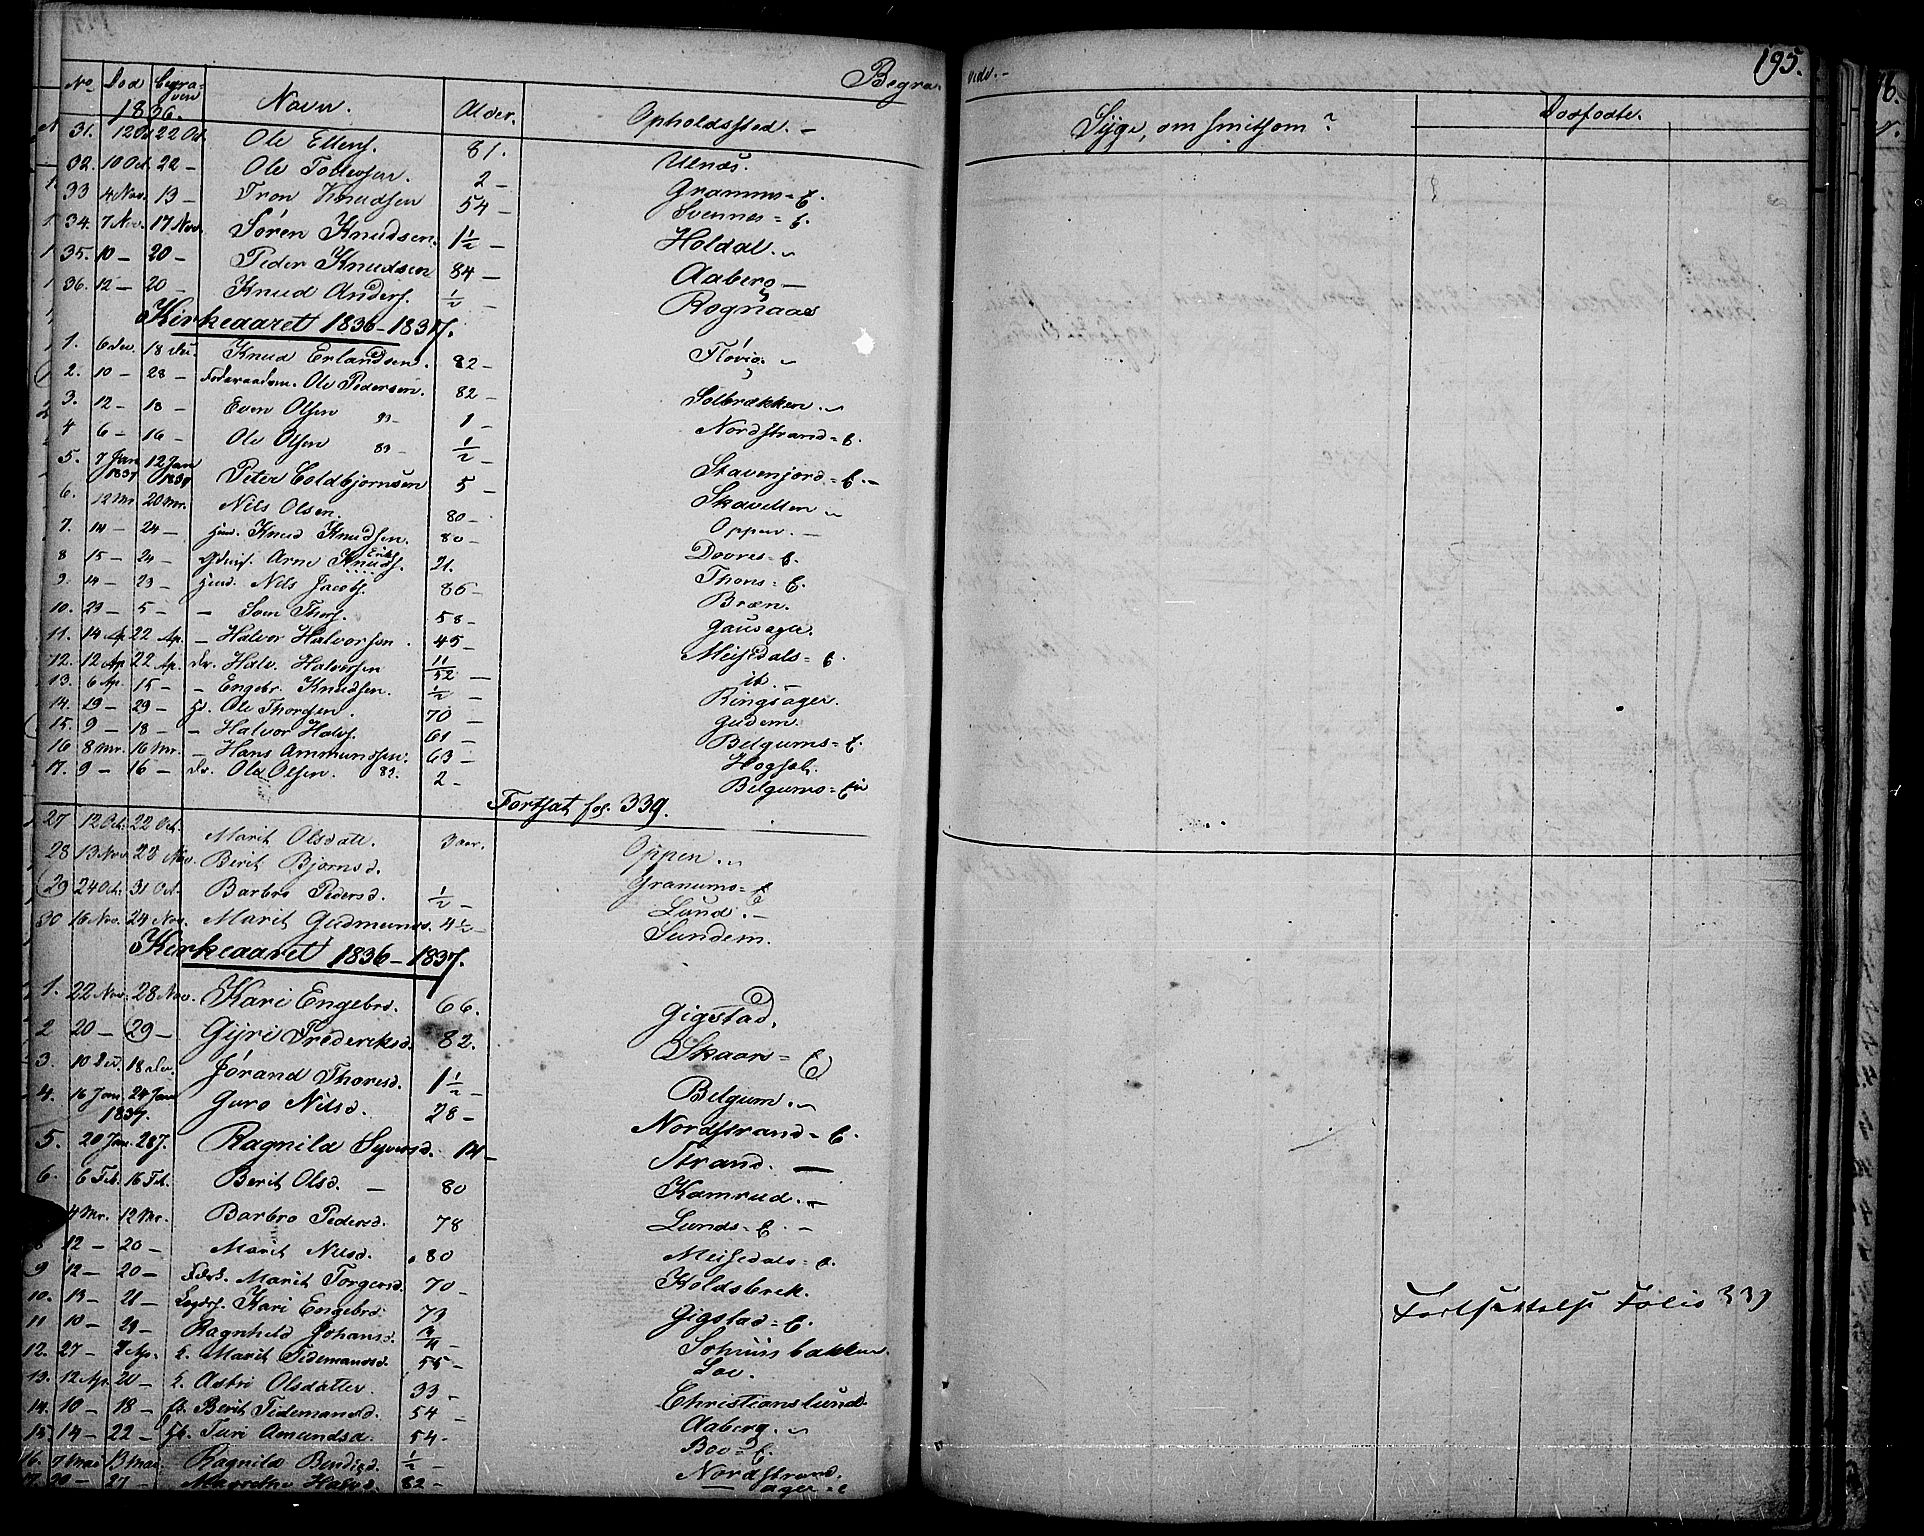 Begra- vede.- 195.
No Död Begra-ven Navn. Alder. Opholdssted. - Syge, om smitsom? Dödfödte.
1836.
31. 12 Oct 22 Oct. Ole Ellens. 81. Ulnæs.
32. 10 Oct. 22 - Ole Tollefsen. 2 - Granums=E.
33 4 Nov. 13 - Tron Knudsen 54 - Svennes=E.
34. 7 Nov. 17 Nov. Sören Knudsen. 1 1/2 - Holdal.
35. 10 - 20 - Peder Knudsen 84 - Aaberg -
36. 12 - 20 - Knud Anders. 1/2 - Rognaas
Kirkeaaret 1836-1837.
1. 6 Dec. 18 Dec. Knud Erlandsen. 82 - Flövig.
2. 10 - 28 - Föderaadsm. Ole Pedersen. 82 - Solbrækken.
3. 12 - 18 - Even Olsen 1 - Nordstrand=E.
4 6 - 16 - Ole Olsen 1/2 - Stavenjord=E.-
5. 7 Jan 1837 12 Jan 1837 Peter Coldbjornsen 5 - Skavelsen
6. 12 Mr. 20 Mr. Nils Olsen. 80 - Oppen. -
7. 14 - 24 - Knud Knudsen. 80 - Dovres=E.
8 15 - 24 - Arne Eriks Knuds. 21. Thons=E.
9. 14 - 23 - Nils Jacobs. 86 - Bræn.
10. 29 - 5 - - Sven Thors. 58 - Gausager.
11. 14 Ap. 22 Ap. - Halvor Halvorsen. 45 - Meisedals=E.
12. 12 Ap 22 Ap. Dr. Halv. Halvorsen 11/52 - it.
13. 6 Ap. 15 - - Engebr. Knudsen. 1/2 - Ringsager.
14. 19 - 29 - Gd. Ole Thordsen. 70 - Gudem.
15. 9 - 18 - - Halvor Halvs. 61 - Belgums=E.
16 8 Mr. 16 Mr. - Hans Ammundsen. 63 - Hogset.
17. 9 - 16 - Dr. Ole Olsen. 2 - Belgums=
Fortsat fol. 339.
27 12 Oct. 22 Oct. Marit Olsdatt. 3 aar. Oppen.
28 13 Nov. 23 Nov. Berit Bjornsd. Granums=E
29 24 Oct. 31 Oct. Barbro Pedersd. 1/2 - Lund. -
30 16 Nov. 24 Nov. Marit Gudmunds. 4 1/2 - Sundem.
Kirkeaaret 1836-1837.
1. 22 Nov. 28 Nov. Kari Engebrd. 66. Gigstad.
2 20 - 29 - Gjøri Frederiksd. 82. Skaan=E
3. 10 Dec. 18 Dec. Jörand Thoresd. 1 1/2 - Belgum.
4. 16 Jan. 24 Jan 1837. Guro Nilsd. 28 - Nordstrand=E.
5. 20 Jan. 28 J. Ragnild Syversd. 14 - Strand. -
6. 6 Feb. 16 Feb. Berit Olsd. - 80 Kamrud. -
4 Mr. 12 Mr. Barbro Pedersd. 78 Lunds=E. -
8 12 - 20 - Marit Nilsd. 80 Meisedals=E.
9 12 - 20 - Marit Torgersd. 70 - Koldsbrek.
10. 13 - 21 - Legdsf. Kari Engebrd. 79 Gigstad=E.
11 10 - 29 - Ragnhild Johansd. 3/4 - bakken
12. 27 - 7 Ap. E. Marit Tidemansd. 55 - Loe.
13. 12 Ap. 20 - E. Astri Olsdatter. 33 - Christianslund
14. 10 - 18 - Berit Tidemansd. 54 - Aaberg.
15. 14 - 22 - Turi Amundsd. 54. Boe=E.
16. 7 Mai 13 Mai Ragnild Bendixd. 1/2 - Nordstrand.
17. 20 - 27 - Halvd. 82 - ager=E
Fortsættelse Folio 339